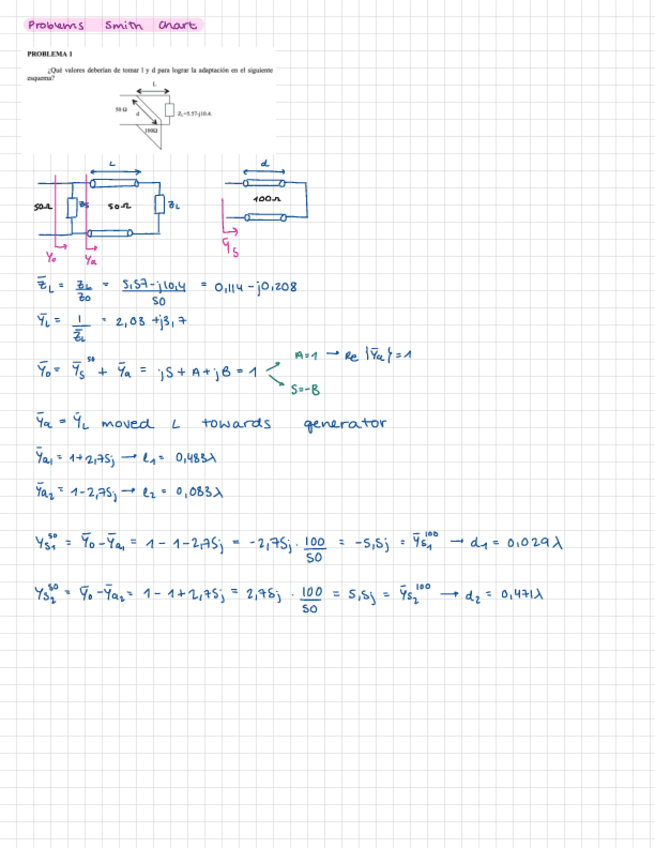 Problems Smith Chart
PROBLEMA 1
¿Qué valores deberían de tomar l y d para lograr la adaptación en el siguiente
esquema?
L
50 Ω
d
Z_L=5.57-j10.4.
100Ω
L
d
50Ω
50Ω
Z_L
100Ω
Y₀
Ya
Ȳs
Z̄_L = Z_L/Z₀ = (5,57-j10,4)/50 = 0,114 - j0,208
Ȳ_L = 1/Z̄_L = 2,03 + j3,7
Ȳ₀ = Ȳs⁵⁰ + Ȳa = jS + A + jB = 1
A=1 → Re {Ȳa} = 1
S=-B
Ȳa = Ȳ_L moved L towards generator
Ȳa₁ = 1+2,75j → l₁ = 0,483λ
Ȳa₂ = 1-2,75j → l₂ = 0,083λ
Ys₁⁵⁰ = Ȳ₀ - Ȳa₁ = 1 - 1 - 2,75j = -2,75j · 100/50 = -5,5j = Ȳs₁¹⁰⁰ → d₁ = 0,029λ
Ys₂⁵⁰ = Ȳ₀ - Ȳa₂ = 1 - 1 + 2,75j = 2,75j · 100/50 = 5,5j = Ȳs₂¹⁰⁰ → d₂ = 0,471λ